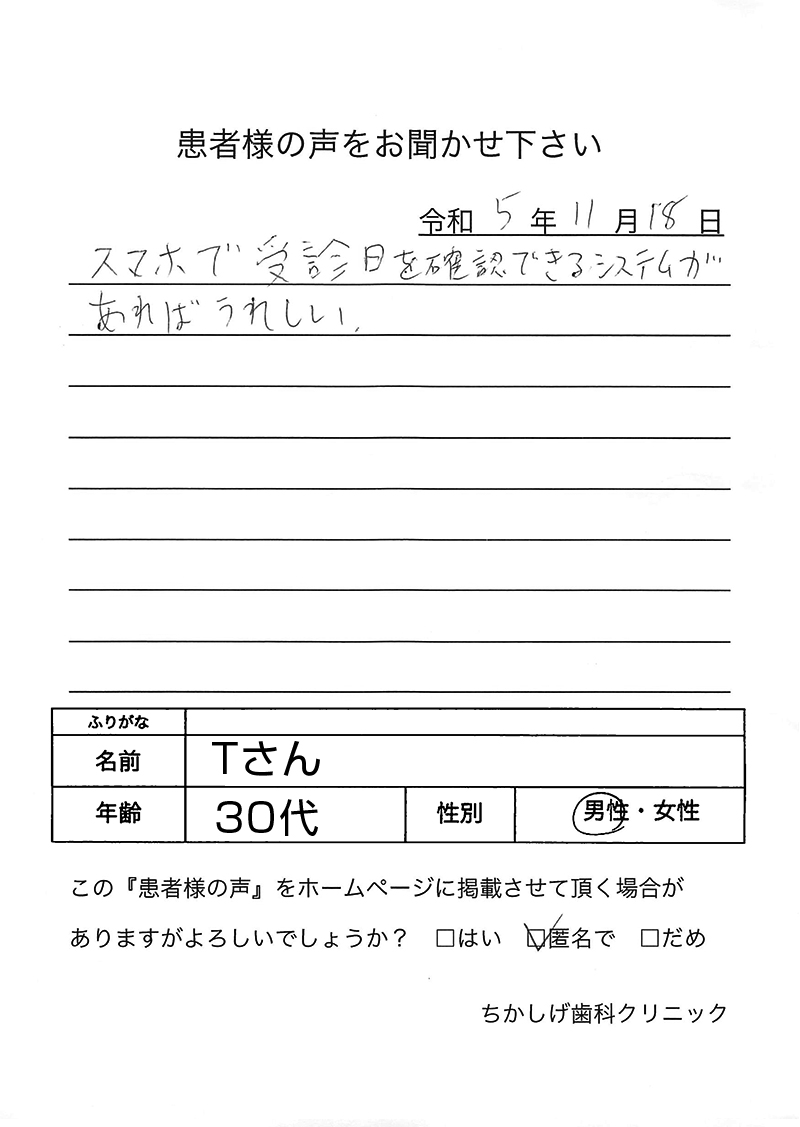 患者様の声をお聞かせ下さい
令和 5 年 11 月 18 日
スマホで受診日を確認できるシステムが
あればうれしい。
ふりがな
名前 Tさん
年齢 30代 性別 男性・女性
この『患者様の声』をホームページに掲載させて頂く場合が
ありますがよろしいでしょうか？ □はい ☑匿名で □だめ
ちかしげ歯科クリニック